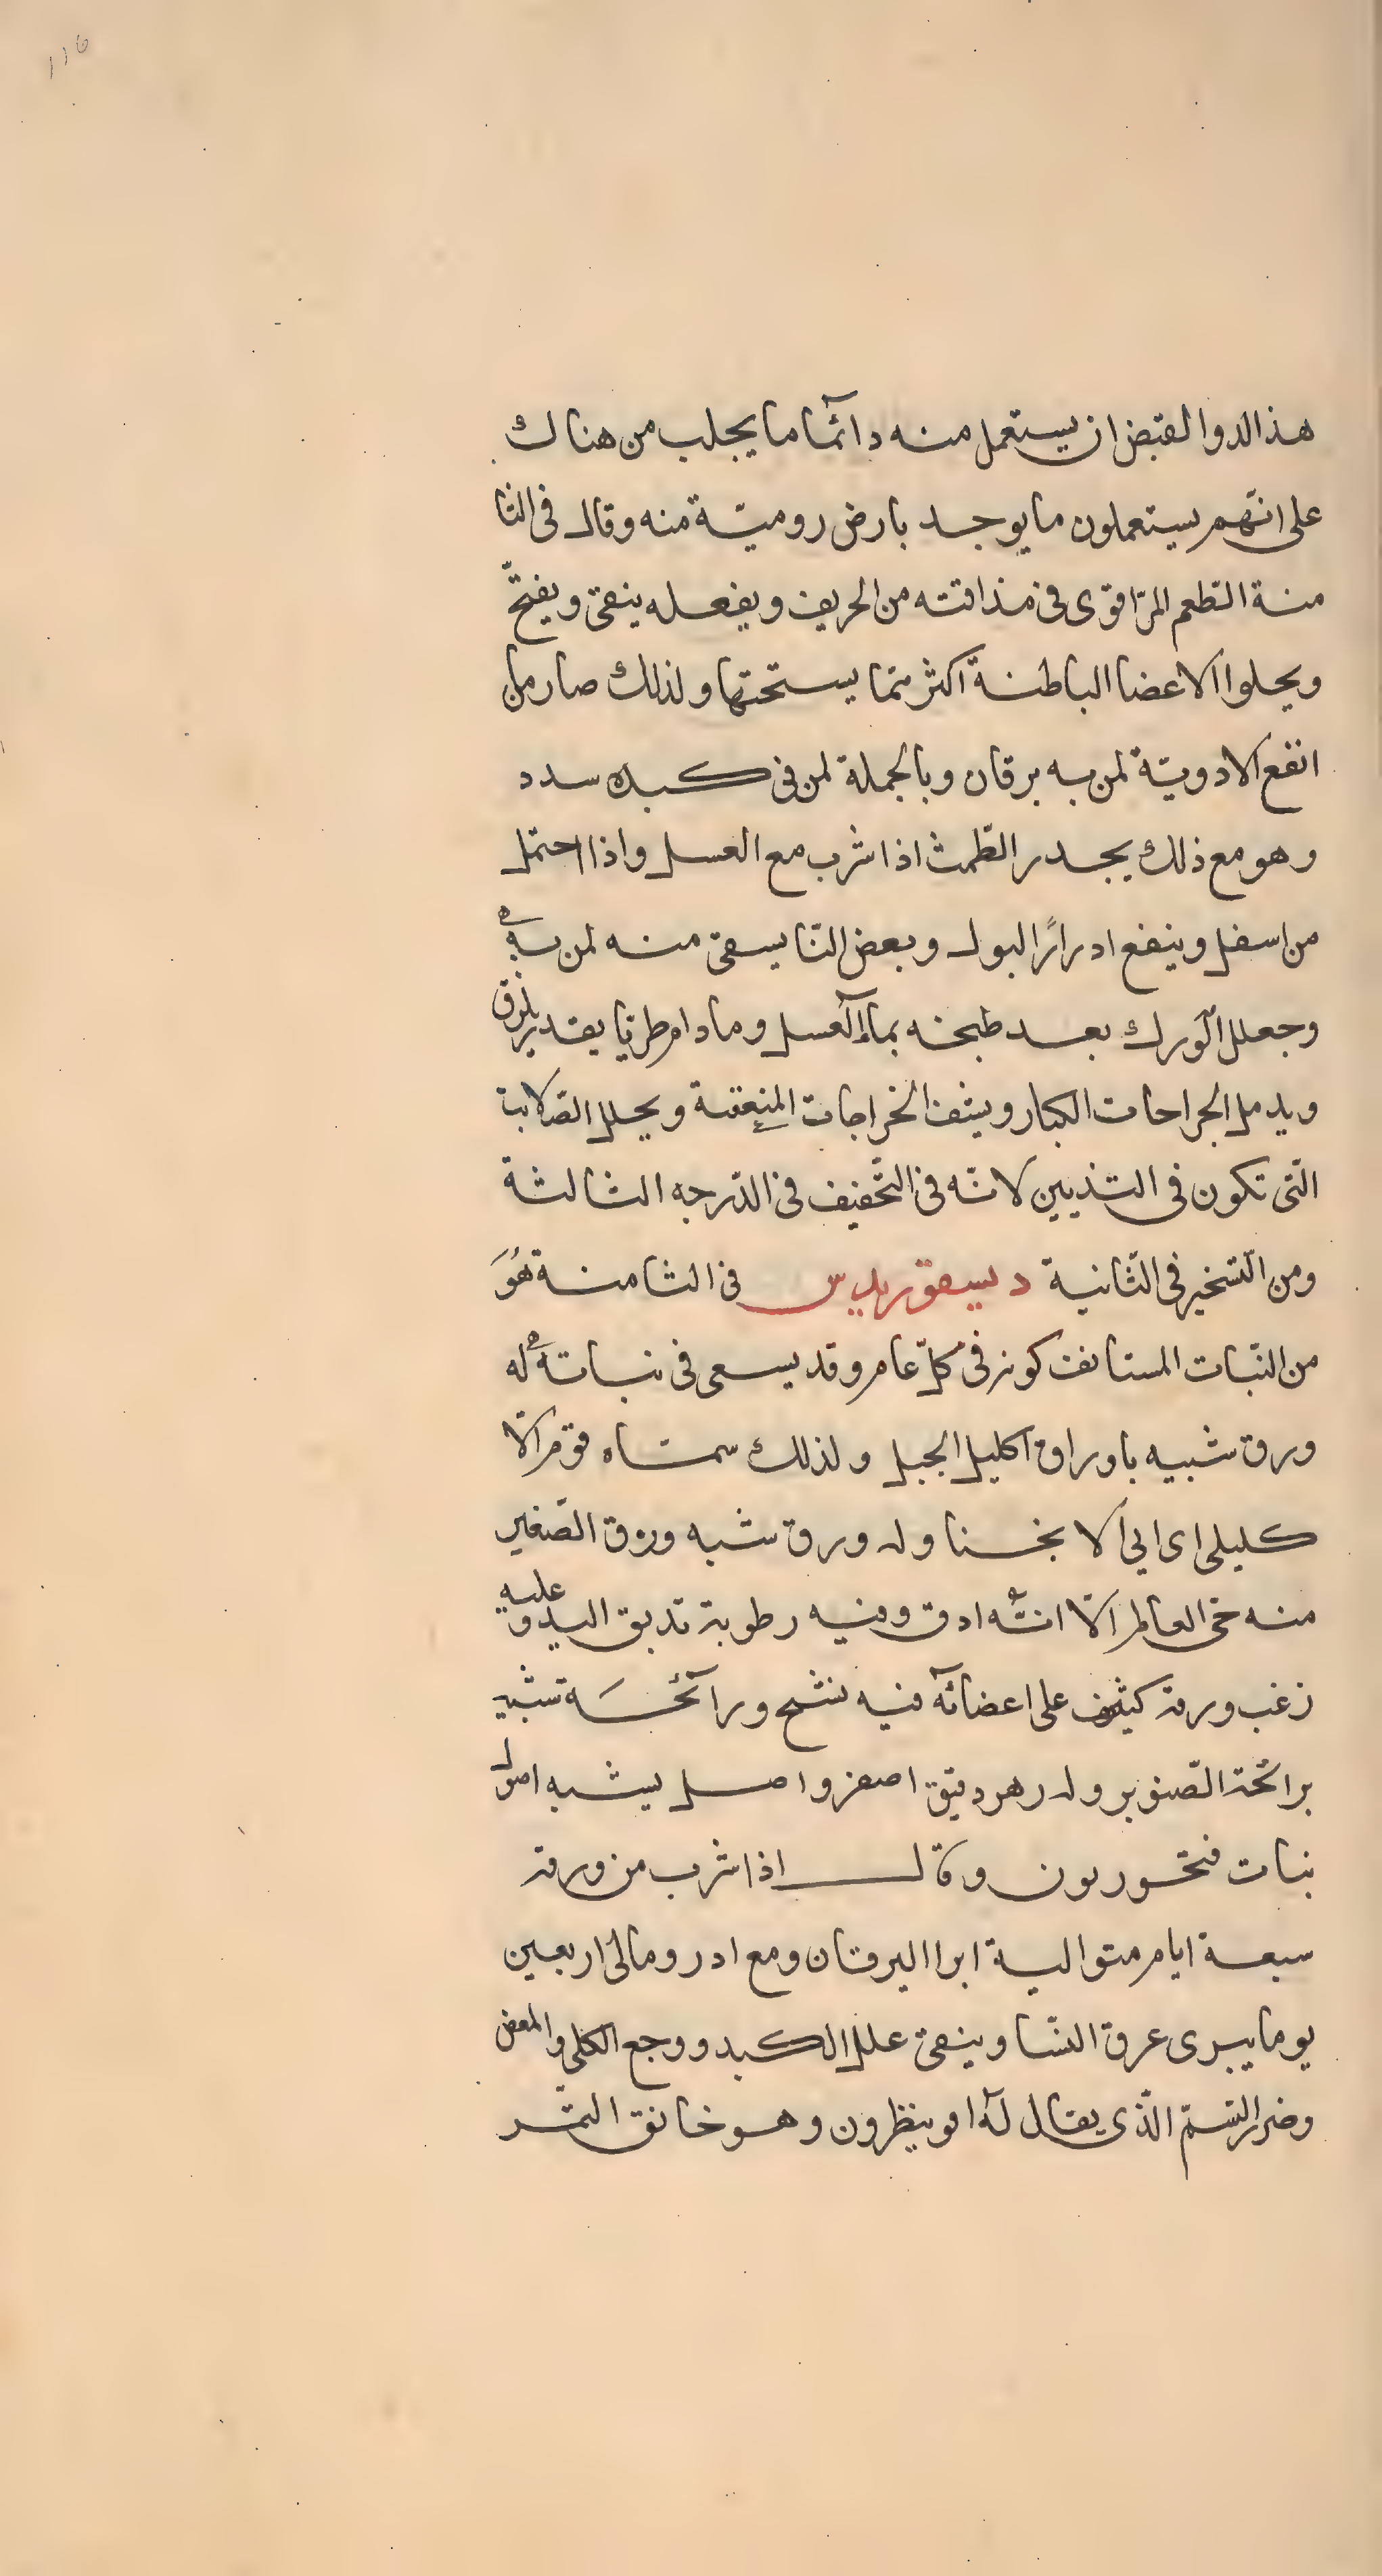 116
هذا الدوا لقبض ان يستعمل منه دآئمًا ما يجلب من هناك
على انّهم يستعملون ما يوجد بارض روميّة منه وقال فى الثا
منة الطّعم المرّ اقوى فى مذاقته من الحريف وبفعله ينقى ويفتّح
ويجلوا الاعضا الباطنة اكثر ممّا يسخنها ولذلك صار من
انفع الادويّة لمن به يرقان وبالجملة لمن فى كبده سدد
وهو مع ذلك يحدر الطّمث اذا شرب مع العسل واذا احتمل
من اسفل وينفع ادرارًا البول وبعض النّا يسقى منه لمن به
وجعلل الورك بعد طبخه بمآء العسل وما دام طريّا يقدير يلزق
ويدمل الجراحات الكبار ويشف الخراجات المنعفنة ويحلل الصّلابة
الّتى تكون فى الثديين لانّه فى التّجفيف فى الدّرجه الثالثة
ومن التّسخير فى الثّانية ديسقوريدس فى الثامنة هُوَ
من النّبات المستانف كونه فى كلّ عام وقد يسعى فى نباته له
ورق شبيه باوراق اكليل الجبل ولذلك سمّاه قوم الا
كليلى اى ابى الا بخسنا وله ورق شبه ورق الصّغير
منه حى العالم الّا انّه ادق وفيه رطوبة تدبق اليد وعليه
زغب وورقه كثيف على اعضائه فيه تشبح ورآئحَسَة تشبه
برائحة الصّنوبر وله زهر دقيق اصفر واصل يشبه اصول
نبات فنخوريون وقال اذا شرب من ورقه
سبعة ايام متوالية ابرا اليرقان ومع ادرومالى اربعين
يوما يبرى عرق النّسا وينقى علل الكبد ووجع الكلى والمغص
وضر السّمّ الّذى يقال له اوبيظرون وهو خانق النّمر